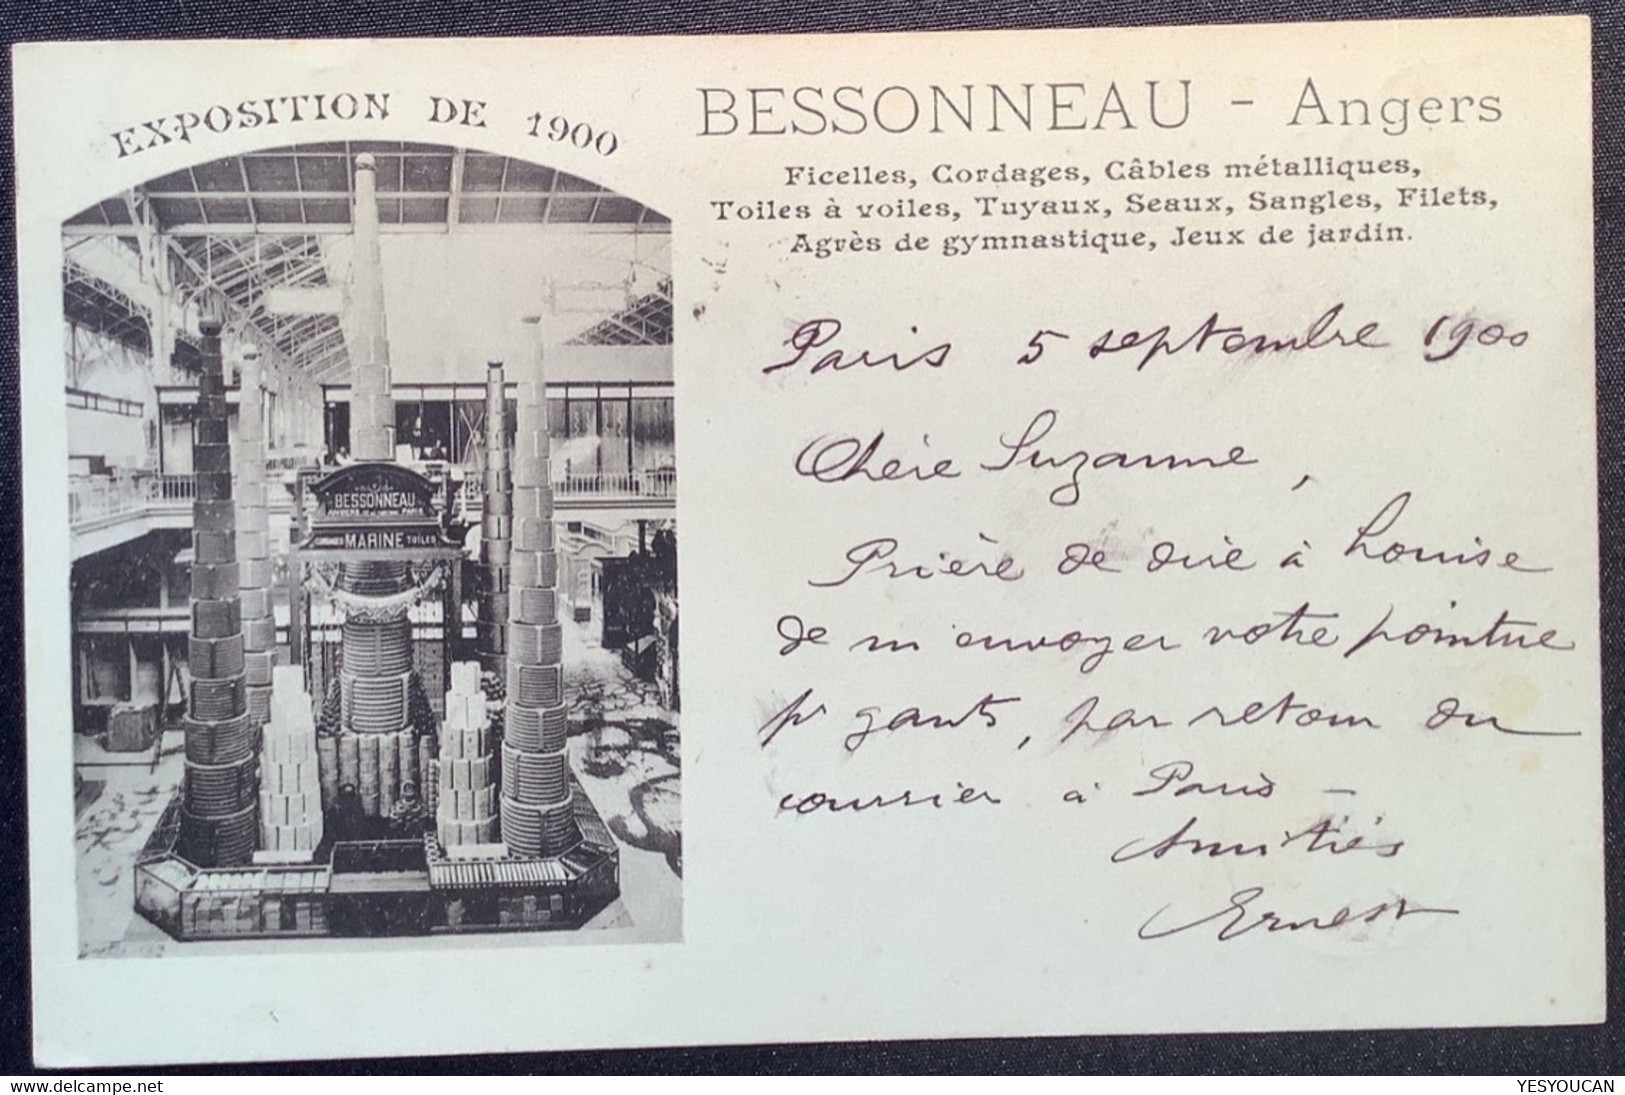 EXPOSITION DE 1900
BESSONNEAU - Angers
Ficelles, Cordages, Câbles métalliques,
Toiles à voiles, Tuyaux, Seaux, Sangles, Filets,
Agrès de gymnastique, Jeux de jardin.
BESSONNEAU
ANGERS PARIS
CORDAGES MARINE TOILES
Paris 5 septembre 1900
Chère Suzanne,
Prière de dire à Louise
de m'envoyer votre pointure
pr gants, par retour du
courrier à Paris -
Amitiés
Ernest
delcampe.net
YESYOUCAN